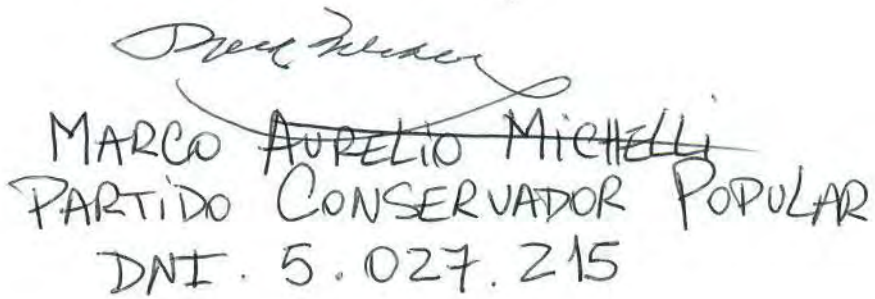 MARCO AURELIO MICHELLi
PARTiDO CONSERVADOR POPULAR
DNI. 5.027.215